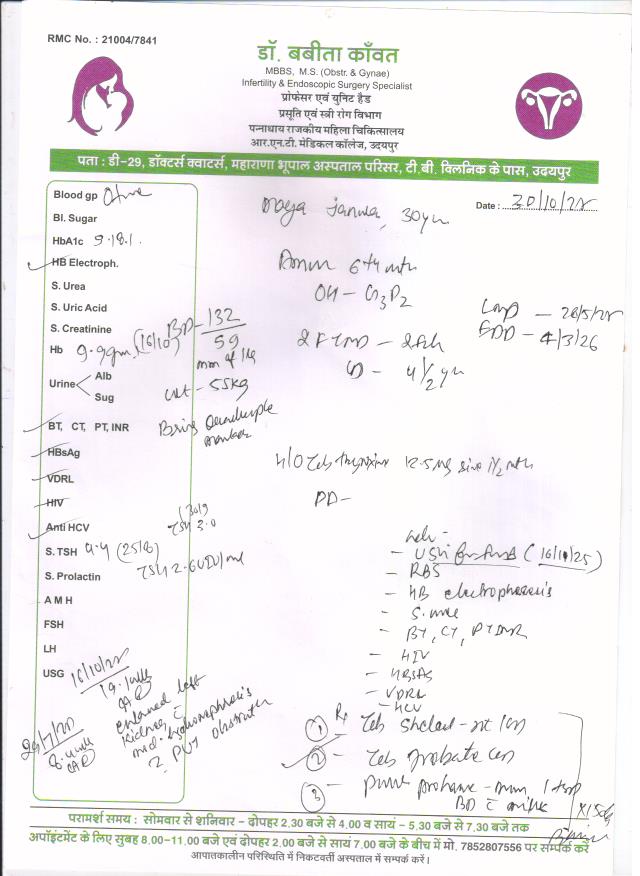 RMC No. : 21004/7841
डॉ. बबीता काँवत
MBBS, M.S. (Obstr. & Gynae)
Infertility & Endoscopic Surgery Specialist
प्रोफेसर एवं युनिट हैड
प्रसूति एवं स्त्री रोग विभाग
पन्नाधाय राजकीय महिला चिकित्सालय
आर.एन.टी. मेडिकल कॉलेज, उदयपुर
पता : डी-29, डॉक्टर्स क्वाटर्स, महाराणा भूपाल अस्पताल परिसर, टी.बी. क्लिनिक के पास, उदयपुर
Date :
30 yr
Blood gp
Bl. Sugar
HbA1c
HB Electroph.
6+4 mth
S. Urea
OH - G3P2
S. Uric Acid
LMP - 28/5/25
EDD - 4/3/26
S. Creatinine
BP - 132/59
mm of Hg
Hb 9.9gm (16/10)
4 1/2 yr
Urine
Alb
Sug
wt - 55kg
BT, CT, PT, INR
Bring Quadruple marker
HBsAg
H/O Tab Thyroxine 12.5 mg since 1 1/2 mth
VDRL
HIV
Anti HCV
TSH 3.0
S. TSH 9.4 (25/8)
TSH 2.6 uIU/ml
S. Prolactin
A M H
FSH
LH
USG 16/10/25
(16/10/25)
- RBS
- HB electrophoresis
- S. urea
- BT, CT, PT INR
- HIV
- HBsAG
- VDRL
- HCV
19.1 wk
enlarged left
kidney c
mod-hydronephrosis
? PUJ obstruction
8.4 wk
Rx
1 Tab
2 Tab
3
BD c milk
x 15 days
परामर्श समय : सोमवार से शनिवार - दोपहर 2.30 बजे से 4.00 व सायं - 5.30 बजे से 7.30 बजे तक
अपॉइंटमेंट के लिए सुबह 8.00-11.00 बजे एवं दोपहर 2.00 बजे से सायं 7.00 बजे के बीच में मो. 7852807556 पर सम्पर्क करें
आपातकालीन परिस्थिति में निकटवर्ती अस्पताल में सम्पर्क करें।